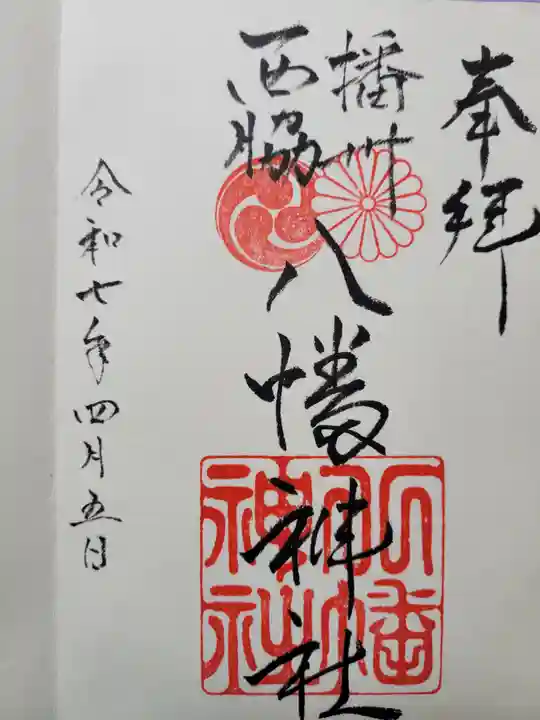 奉拝
播州
西脇
八幡神社
令和七年四月五日